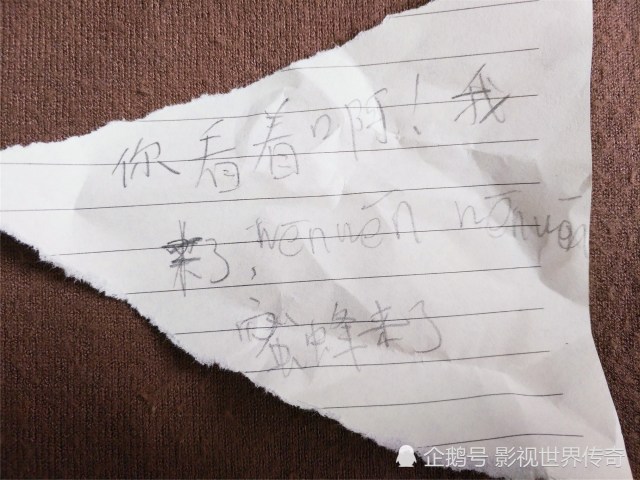 你看着啊！我
来了，wēnwēn wēnwēn
蜜蜂来了
企鹅号 影视世界传奇